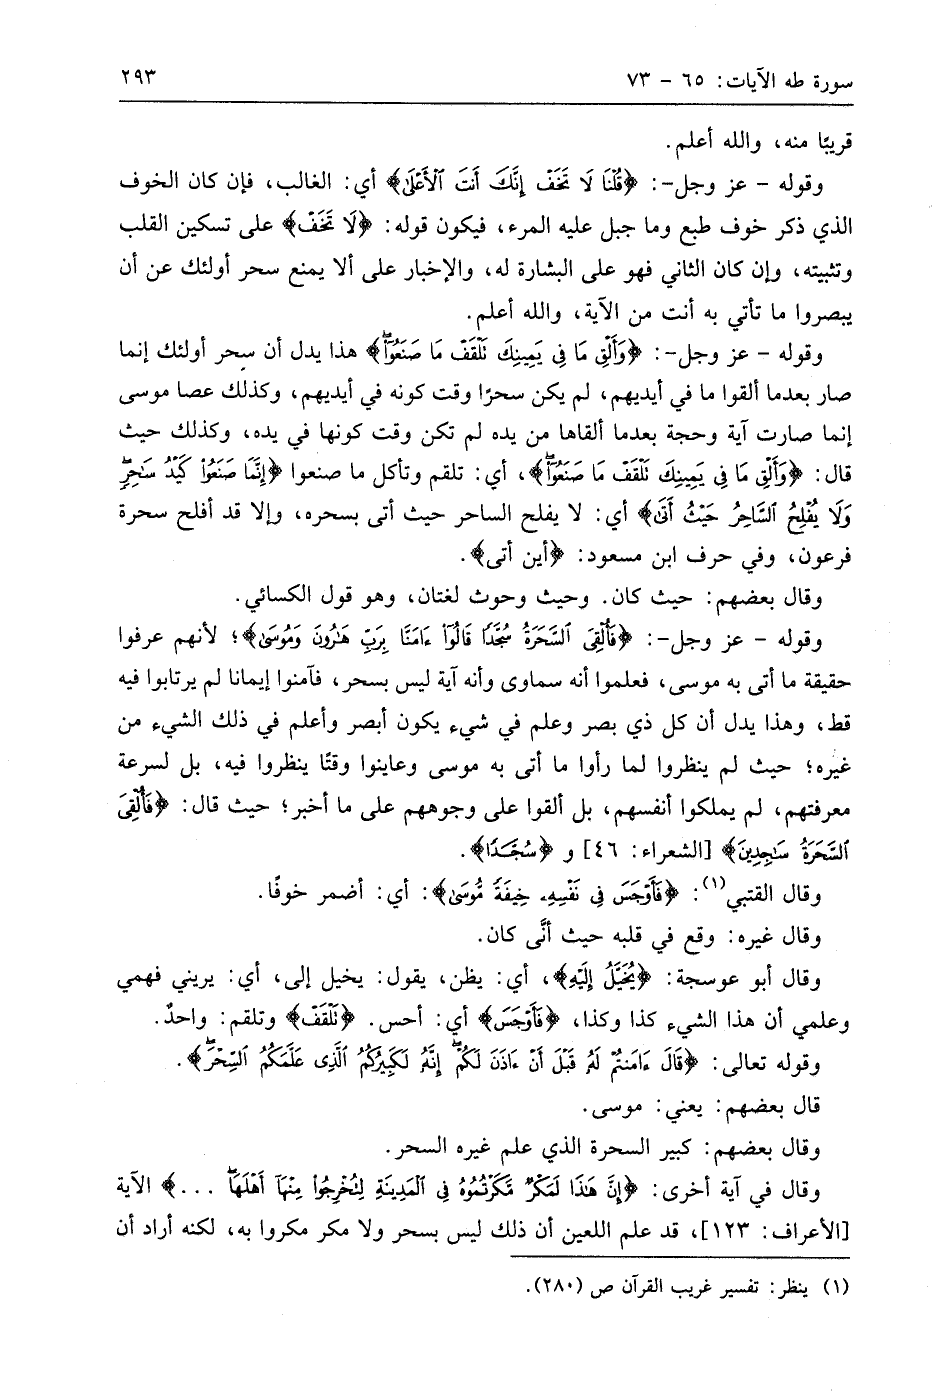 سورة طه الآيات: ٦٥ - ٧٣ ٢٩٣
قريبًا منه، والله أعلم.
وقوله - عز وجل-: ﴿قُلْنَا لَا تَخَفْ إِنَّكَ أَنتَ ٱلْأَعْلَىٰ﴾ أي: الغالب، فإن كان الخوف
الذي ذكر خوف طبع وما جبل عليه المرء، فيكون قوله: ﴿لَا تَخَفْ﴾ على تسكين القلب
وتثبيته، وإن كان الثاني فهو على البشارة له، والإخبار على ألا يمنع سحر أولئك عن أن
يبصروا ما تأتي به أنت من الآية، والله أعلم.
وقوله - عز وجل-: ﴿وَأَلْقِ مَا فِى يَمِينِكَ تَلْقَفْ مَا صَنَعُوٓا۟ۖ﴾ هذا يدل أن سحر أولئك إنما
صار بعدما ألقوا ما في أيديهم، لم يكن سحرًا وقت كونه في أيديهم، وكذلك عصا موسى
إنما صارت آية وحجة بعدما ألقاها من يده لم تكن وقت كونها في يده، وكذلك حيث
قال: ﴿وَأَلْقِ مَا فِى يَمِينِكَ تَلْقَفْ مَا صَنَعُوٓا۟ۖ﴾، أي: تلقم وتأكل ما صنعوا ﴿إِنَّمَا صَنَعُوا۟ كَيْدُ سَٰحِرٍۖ
وَلَا يُفْلِحُ ٱلسَّاحِرُ حَيْثُ أَتَىٰ﴾ أي: لا يفلح الساحر حيث أتى بسحره، وإلا قد أفلح سحرة
فرعون، وفي حرف ابن مسعود: ﴿أين أتى﴾.
وقال بعضهم: حيث كان. وحيث وحوث لغتان، وهو قول الكسائي.
وقوله - عز وجل-: ﴿فَأُلْقِىَ ٱلسَّحَرَةُ سُجَّدًا قَالُوٓا۟ ءَامَنَّا بِرَبِّ هَٰرُونَ وَمُوسَىٰ﴾؛ لأنهم عرفوا
حقيقة ما أتى به موسى، فعلموا أنه سماوى وأنه آية ليس بسحر، فآمنوا إيمانا لم يرتابوا فيه
قط، وهذا يدل أن كل ذي بصر وعلم في شيء يكون أبصر وأعلم في ذلك الشيء من
غيره؛ حيث لم ينظروا لما رأوا ما أتى به موسى وعاينوا وقتًا ينظروا فيه، بل لسرعة
معرفتهم، لم يملكوا أنفسهم، بل ألقوا على وجوههم على ما أخبر؛ حيث قال: ﴿فَأُلْقِىَ
ٱلسَّحَرَةُ سَٰجِدِينَ﴾ [الشعراء: ٤٦] و ﴿سُجَّدًا﴾.
وقال القتبي(١): ﴿فَأَوْجَسَ فِى نَفْسِهِۦ خِيفَةً مُّوسَىٰ﴾: أي: أضمر خوفًا.
وقال غيره: وقع في قلبه حيث أنَّى كان.
وقال أبو عوسجة: ﴿يُخَيَّلُ إِلَيْهِ﴾، أي: يظن، يقول: يخيل إلى، أي: يريني فهمي
وعلمي أن هذا الشيء كذا وكذا، ﴿فَأَوْجَسَ﴾ أي: أحس. ﴿تَلْقَفْ﴾ وتلقم: واحدٌ.
وقوله تعالى: ﴿قَالَ ءَامَنتُمْ لَهُۥ قَبْلَ أَنْ ءَاذَنَ لَكُمْۖ إِنَّهُۥ لَكَبِيرُكُمُ ٱلَّذِى عَلَّمَكُمُ ٱلسِّحْرَۖ﴾.
قال بعضهم: يعني: موسى.
وقال بعضهم: كبير السحرة الذي علم غيره السحر.
وقال في آية أخرى: ﴿إِنَّ هَٰذَا لَمَكْرٌ مَّكَرْتُمُوهُ فِى ٱلْمَدِينَةِ لِتُخْرِجُوا۟ مِنْهَآ أَهْلَهَاۖ ...﴾ الآية
[الأعراف: ١٢٣]، قد علم اللعين أن ذلك ليس بسحر ولا مكر مكروا به، لكنه أراد أن
(١) ينظر: تفسير غريب القرآن ص (٢٨٠).